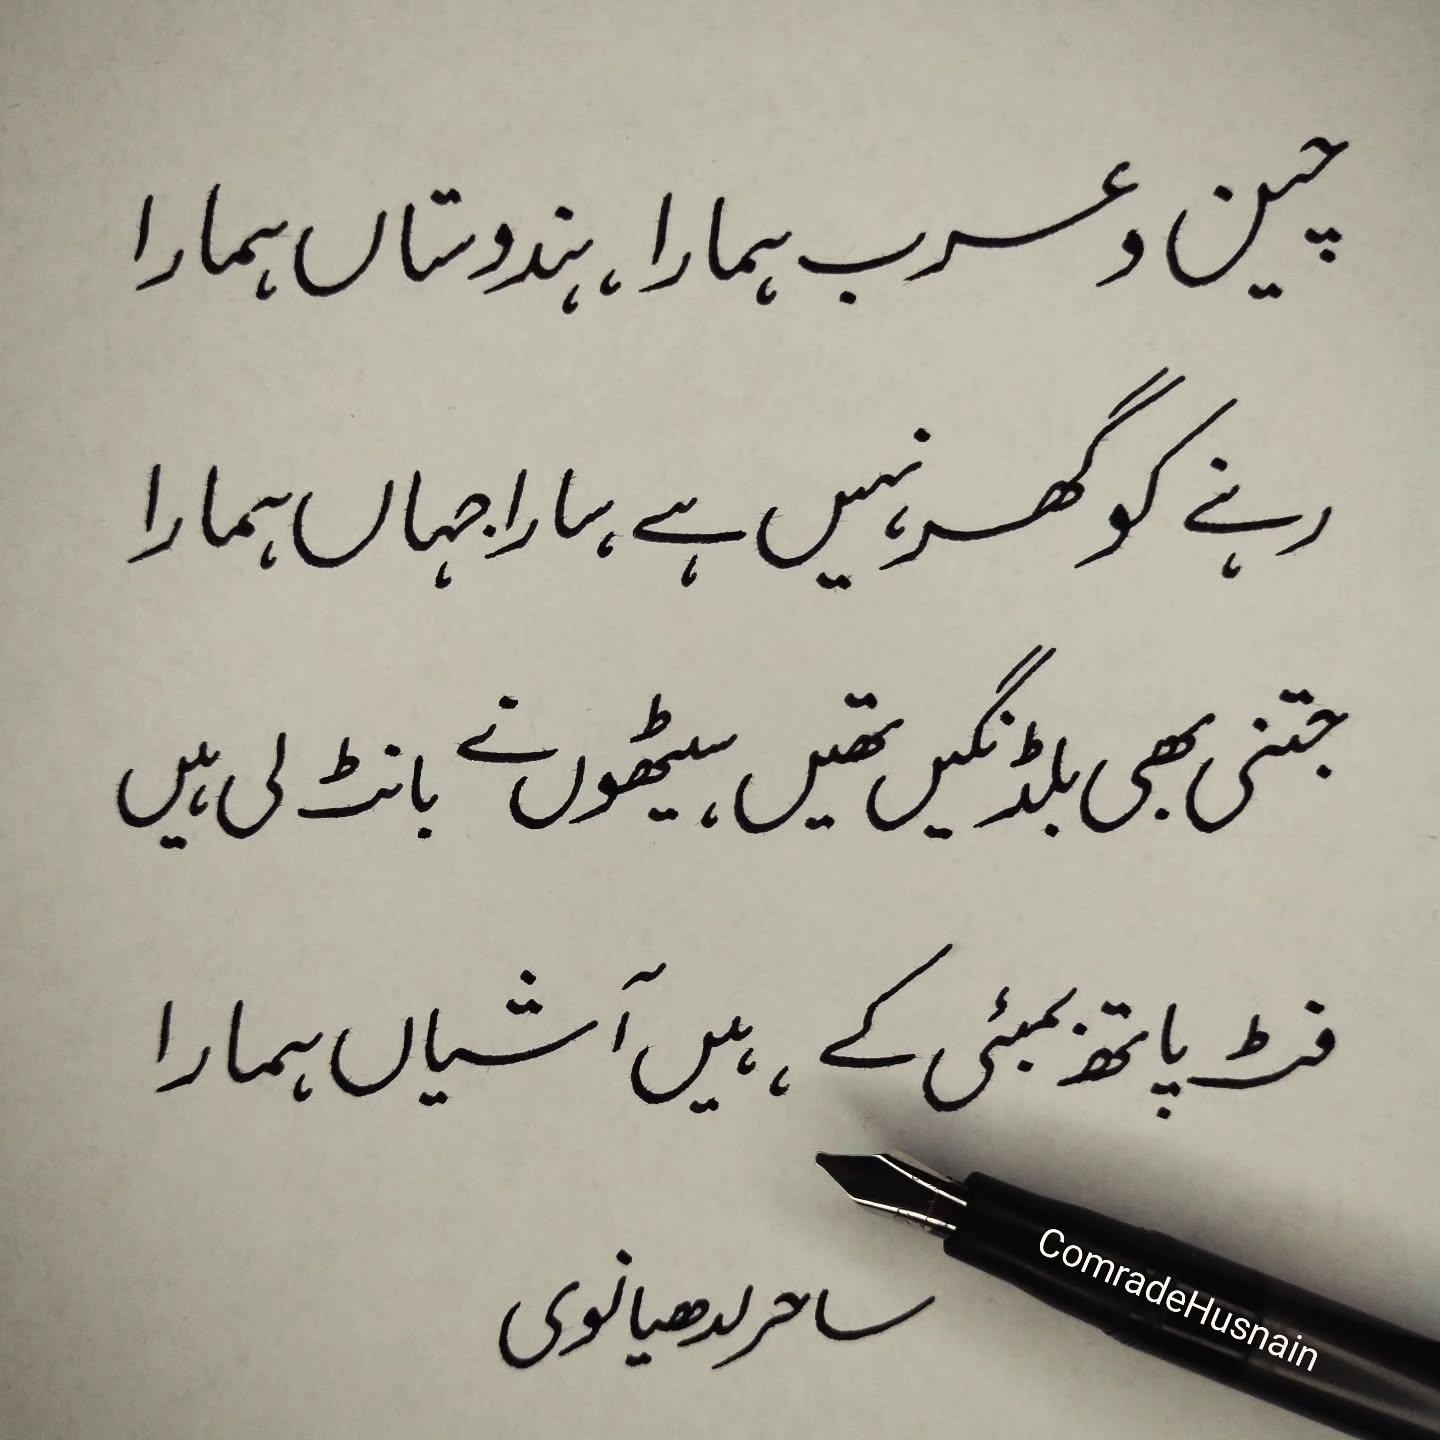 چین و عرب ہمارا، ہندوستاں ہمارا
رہنے کو گھر نہیں ہے، سارا جہاں ہمارا
جتنی بھی بلڈنگیں تھیں، سیٹھوں نے بانٹ لی ہیں
فٹ پاتھ بمبئی کے، ہیں آشیاں ہمارا
ساحر لدھیانوی
ComradeHusnain